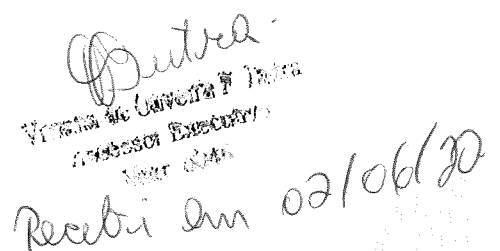 Dutra
de Oliveira F. Dutra
Assessor Executivo
Recebi em 02/06/20